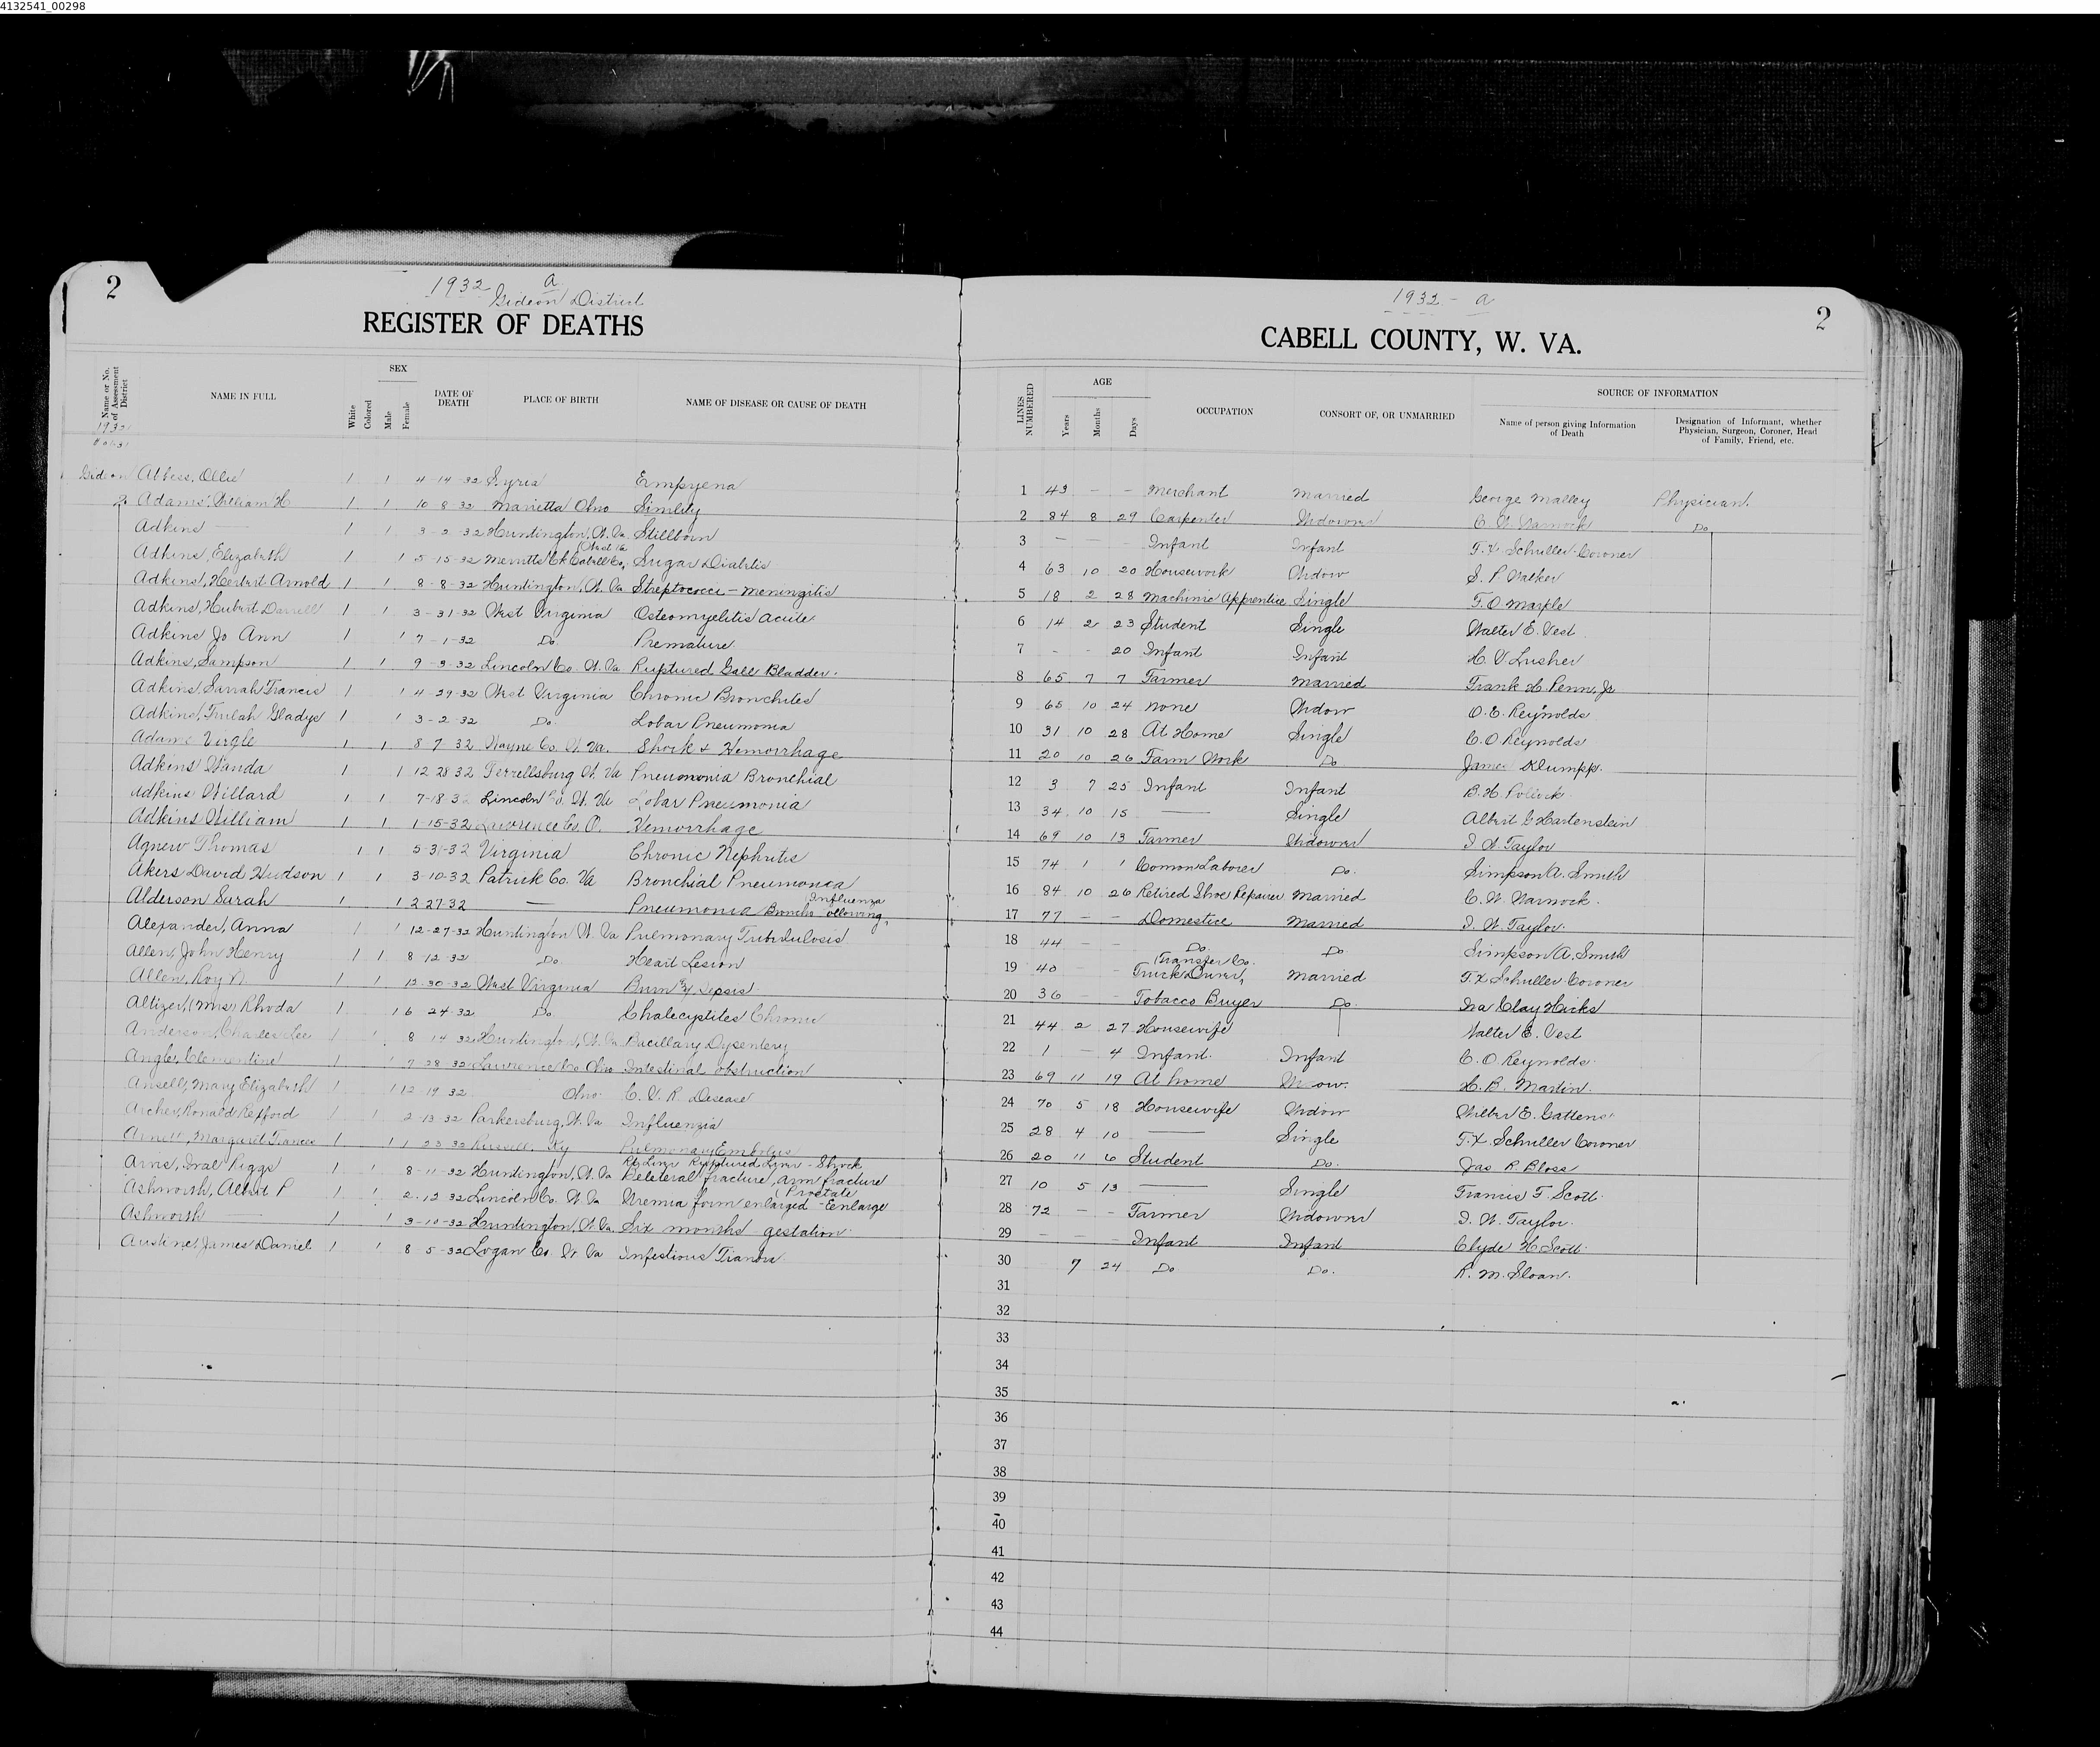 4132541_00298
2
1932 a
Gideon District
REGISTER OF DEATHS
1932 - a
2
CABELL COUNTY, W. VA.
Name or No. of Assessment District
NAME IN FULL
White
Colored
SEX
Male
Female
DATE OF DEATH
PLACE OF BIRTH
NAME OF DISEASE OR CAUSE OF DEATH
LINES NUMBERED
AGE
Years
Months
Days
OCCUPATION
CONSORT OF, OR UNMARRIED
SOURCE OF INFORMATION
Name of person giving Information of Death
Designation of Informant, whether Physician, Surgeon, Coroner, Head of Family, Friend, etc.
Gideon Abbess, Ollie 1 1 4 14 32 Syria Empyena 1 43 - - Merchant Married George Malley Physician.
2 Adams, William H. 1 1 10 8 32 Marietta Ohio Simlity 2 84 8 29 Carpenter Widower C. W. Warnock Do
Adkins — 1 1 3-2-32 Huntington, W. Va. Stillborn 3 - - - Infant Infant F. X. Schuller Coroner
Adkins, Elizabeth 1 1 5-15-32 Merritts Ck Cabell Co, West Va Sugar Diabitis 4 63 10 20 Housework Widow S. P. Walker
Adkins, Herbert Arnold 1 1 8-8-32 Huntington, W. Va Streptococci - meningitis 5 18 2 28 Machinic Apprentice Single F. O. Marple
Adkins, Hubert Darrell 1 1 3-31-32 West Virginia Osteomyelitis acute 6 14 2 23 Student Single Walter E. Vest
Adkins Jo Ann 1 1 7-1-32 Do. Premature 7 - - 20 Infant Infant H. V. Lusher
Adkins, Sampson 1 1 9-3-32 Lincoln Co. W. Va Ruptured Gall Bladder. 8 65 7 7 Farmer Married Frank H. Penn, Jr
Adkins, Sarrah Francis 1 1 4-29-32 West Virginia Chronic Bronchites 9 65 10 24 None Widow O. E. Reynolds
Adkins, Trulah Gladys 1 1 3-2-32 Do. Lobar Pneumonia 10 31 10 28 At Home Single C. O. Reynolds
Adams Virgle 1 1 8 7 32 Wayne Co. W. Va. Shock & Hemorrhage 11 20 10 26 Farm Work Do. James Klumpp.
Adkins Wanda 1 1 12 28 32 Ferrellsburg W. Va Pneumonia Bronchial 12 3 7 25 Infant Infant B. H. Pollock
Adkins Willard 1 1 7-18-32 Lincoln Co. W. Va Lobar Pneumonia 13 34 10 15 — Single Albert C Hartenstein
Adkins William 1 1 1-15-32 Lawrence Co. O. Hemorrhage 14 69 10 13 Farmer Widower I. W. Taylor
Agnew Thomas 1 1 5-31-32 Virginia Chronic Nephritis 15 74 1 1 Comon Laborer Do. Simpson A. Smith
Akers David Hudson 1 1 3-10-32 Patrick Co. Va Bronchial Pneumonia 16 84 10 26 Retired Shoe Repairer Married C. W. Warnock.
Alderson Sarah 1 1 2-27-32 — Pneumonia Broncho ollowing, Influenza 17 77 - - Domestice Married I. W. Taylor.
Alexander, Anna 1 1 12-27-32 Huntington W. Va Pulmonary Tuburulosis 18 44 - - Do. Do Simpson A. Smith
Allen, John Henry 1 1 8 12-32 Do. Heart Lesion 19 40 - - Truck Driver, Transfer Co. Married F. X Schuller Coroner
Allen, Roy N. 1 1 12-30-32 West Virginia Burn Sepsis 20 36 - - Tobacco Buyer Do. Ira Clay Hicks
Altizer, (Mrs) Rhoda 1 1 6 24-32 Do. Chalecystites Chronic 21 44 2 27 Housewife Walter E. Vest
Anderson, Charles Lee 1 8 14 32 Huntington, W. Va Bucillary Dysentery 22 1 - 4 Infant. Infant C. O. Reynolds
Angle, Clementine 1 1 7-28-32 Lawrence Co Ohio Intestinal obstruction 23 69 11 19 At home W ow. H. B. Martin.
Ansell, Mary Elizabeth 1 1 12-19-32 Ohio. C. V. R. Disease 24 70 5 18 Housewife Widow Wilber E. Gattens
Archer, Ronald Refford 1 1 2-13-32 Parkersburg, W. Va Influenzia 25 28 4 10 — Single F. X. Schuller Coroner
Arnett, Margaret Frances 1 1 1 23 32 Russell, Ky Pulmonary Embolus 26 20 11 6 Student Do. Jas R. Bloss
Arris, Iral Riggs 1 1 8-11-32 Huntington, W. Va Beleteral fracture, arm fracture Ruptured Liver - Shock 27 10 5 13 — Single Francis F. Scott.
Ashworth, Albert P 1 1 2-12-32 Lincoln Co. W. Va Uremia form enlarged - Eenlarge (Prostate 28 72 - - Farmer Widower I. W. Taylor.
Ashworth — 1 1 3-11-32 Huntington, W. Va. Six months gestation 29 - - - Infant Infant Clyde H Scott.
Austine, James Daniel 1 1 8 5-32 Logan Co. W Va Infestious 30 7 24 Do Do. R. M. Sloan.
31
32
33
34
35
36
37
38
39
40
41
42
43
44
5